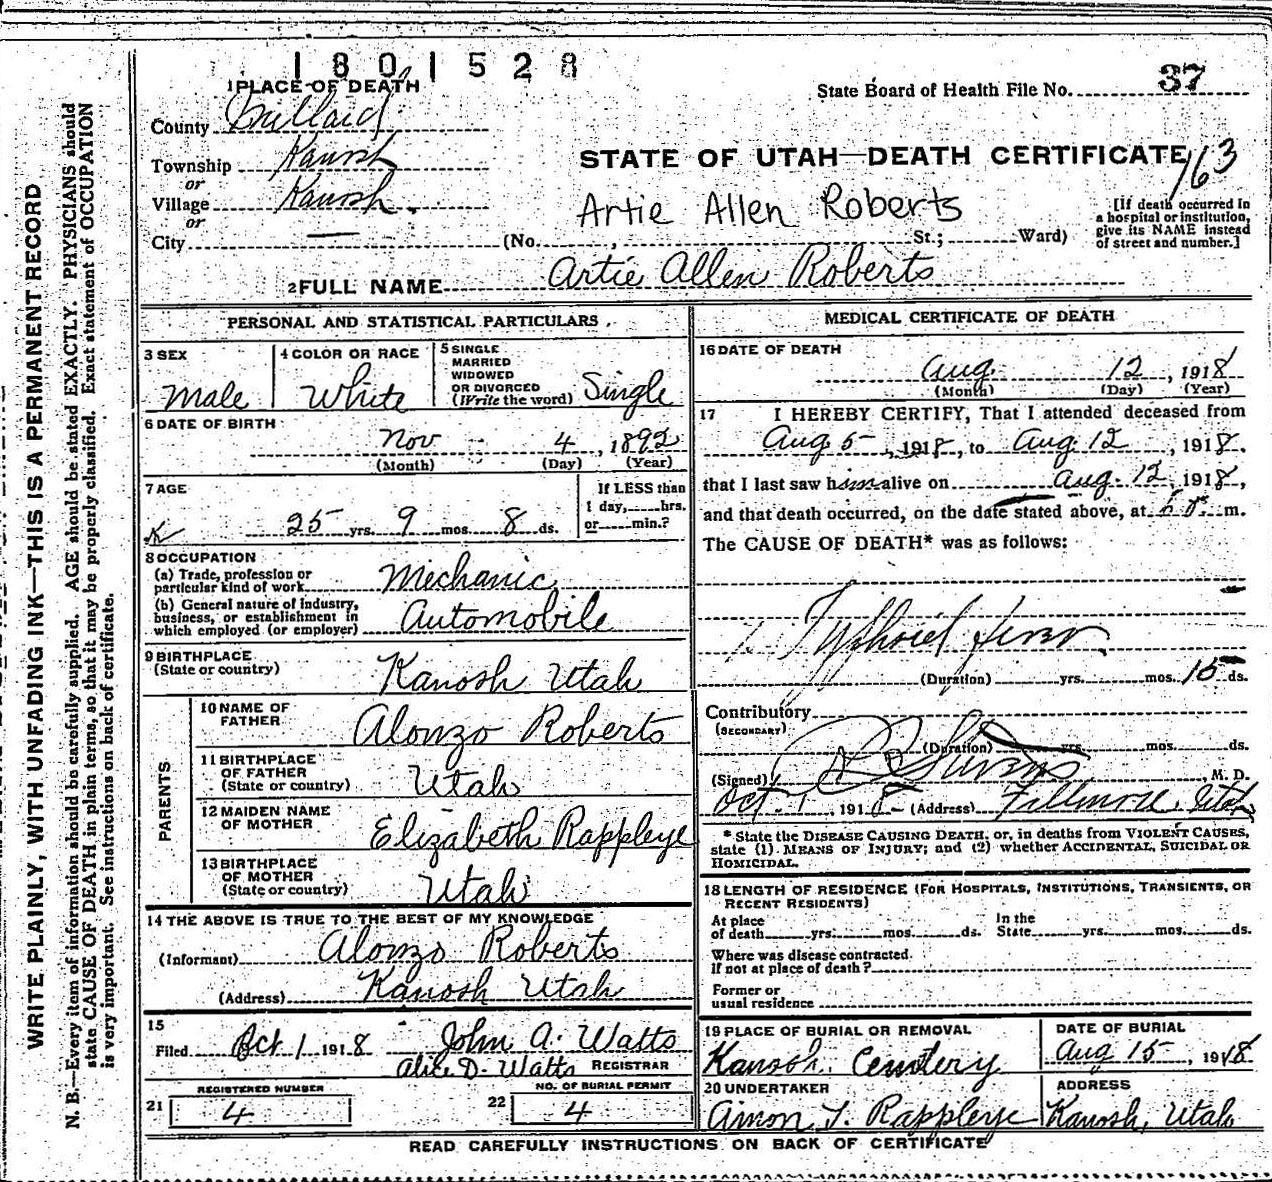 1801528
1 PLACE OF DEATH
State Board of Health File No. 37
County Millard
Township Kanosh
or
Village Kanosh
or
City —
STATE OF UTAH—DEATH CERTIFICATE 163
Artie Allen Roberts
(No. , St.; Ward)
[If death occurred in
a hospital or institution,
give its NAME instead
of street and number.]
2 FULL NAME Artie Allen Roberts
PERSONAL AND STATISTICAL PARTICULARS
3 SEX
Male
4 COLOR OR RACE
White
5 SINGLE
MARRIED
WIDOWED
OR DIVORCED
(Write the word) Single
6 DATE OF BIRTH
Nov 4, 1892
(Month) (Day) (Year)
7 AGE
25 yrs. 9 mos. 8 ds.
If LESS than
1 day, hrs.
or min.?
8 OCCUPATION
(a) Trade, profession or
particular kind of work Mechanic
(b) General nature of industry,
business, or establishment in
which employed (or employer) Automobile
9 BIRTHPLACE
(State or country) Kanosh Utah
PARENTS
10 NAME OF
FATHER Alonzo Roberts
11 BIRTHPLACE
OF FATHER
(State or country) Utah
12 MAIDEN NAME
OF MOTHER Elizabeth Rappleye
13 BIRTHPLACE
OF MOTHER
(State or country) Utah
14 THE ABOVE IS TRUE TO THE BEST OF MY KNOWLEDGE
(Informant) Alonzo Roberts
(Address) Kanosh Utah
15
Filed Oct 1 1918 John A. Watts
Alice D. Watts REGISTRAR
REGISTERED NUMBER
21 4
NO. OF BURIAL PERMIT
22 4
MEDICAL CERTIFICATE OF DEATH
16 DATE OF DEATH
Aug. 12, 1918
(Month) (Day) (Year)
17 I HEREBY CERTIFY, That I attended deceased from
Aug 5, 1918, to Aug. 12, 1918.
that I last saw him alive on Aug. 12, 1918,
and that death occurred, on the date stated above, at m.
The CAUSE OF DEATH* was as follows:
Typhoid fever
(Duration) yrs. mos. 15 ds.
Contributory
(SECONDARY)
(Duration) yrs. mos. ds.
(Signed) Stevens, M. D.
Oct. 1, 1918 (Address) Fillmore, Utah
* State the DISEASE CAUSING DEATH, or, in deaths from VIOLENT CAUSES,
state (1) MEANS OF INJURY; and (2) whether ACCIDENTAL, SUICIDAL OR
HOMICIDAL.
18 LENGTH OF RESIDENCE (FOR HOSPITALS, INSTITUTIONS, TRANSIENTS, OR
RECENT RESIDENTS)
At place
of death yrs. mos. ds.
In the
State yrs. mos. ds.
Where was disease contracted
if not at place of death?
Former or
usual residence
19 PLACE OF BURIAL OR REMOVAL
Kanosh. Cemetery
DATE OF BURIAL
Aug 15, 1918
20 UNDERTAKER
Amon T. Rappleye
ADDRESS
Kanosh, Utah
READ CAREFULLY INSTRUCTIONS ON BACK OF CERTIFICATE
WRITE PLAINLY, WITH UNFADING INK—THIS IS A PERMANENT RECORD
N. B.—Every item of information should be carefully supplied. AGE should be stated EXACTLY. PHYSICIANS should
state CAUSE OF DEATH in plain terms, so that it may be properly classified. Exact statement of OCCUPATION
is very important. See instructions on back of certificate.